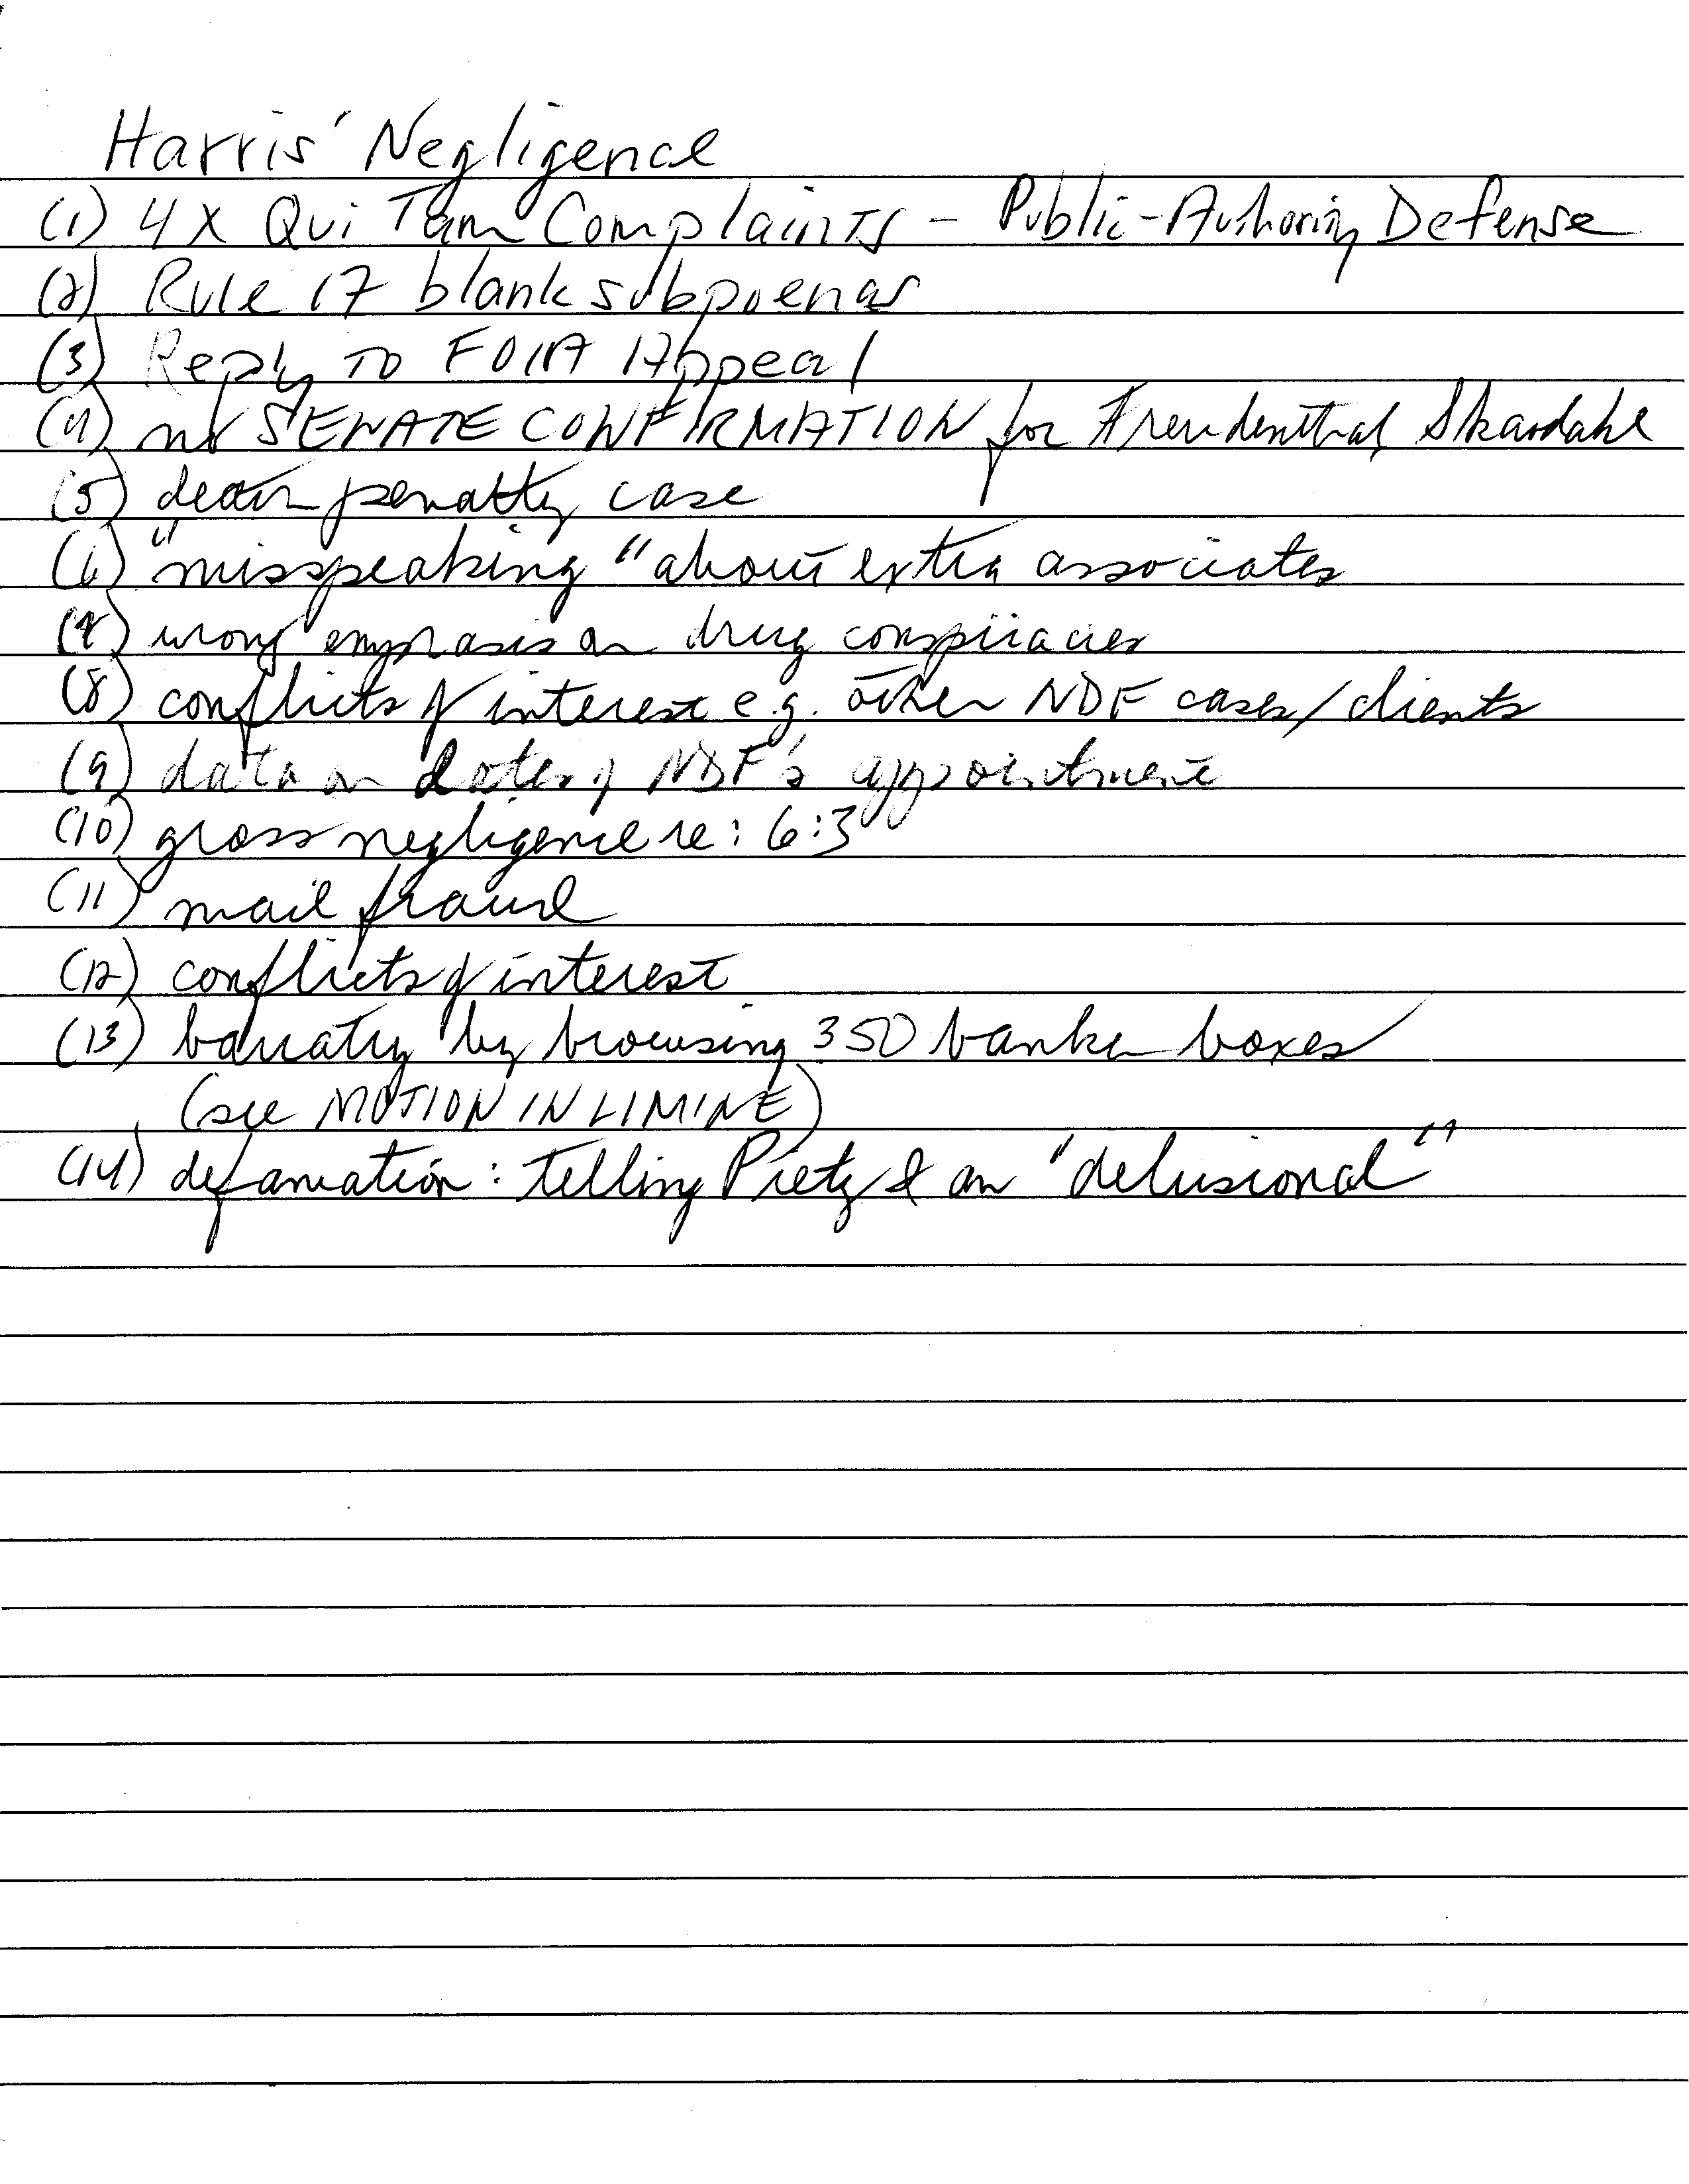 Harris' Negligence
(1) 4X Qui Tam Complaints - Public-Authority Defense
(2) Rule 17 blank subpoenas
(3) Reply TO FOIA Appeal
(4) no SENATE CONFIRMATION for Freudenthal, Skavdahl
(5) death penalty case
(6) "misspeaking" about extra associates
(7) wrong emphasis on drug conspiracies
(8) conflicts of interest e.g. other NDF cases/clients
(9) data on dates of NDF's appointment
(10) gross negligence re: 6:3
(11) mail fraud
(12) conflicts of interest
(13) barratry by browsing 350 banker boxes
(see MOTION IN LIMINE)
(14) defamation: telling Pietz I am "delusional"